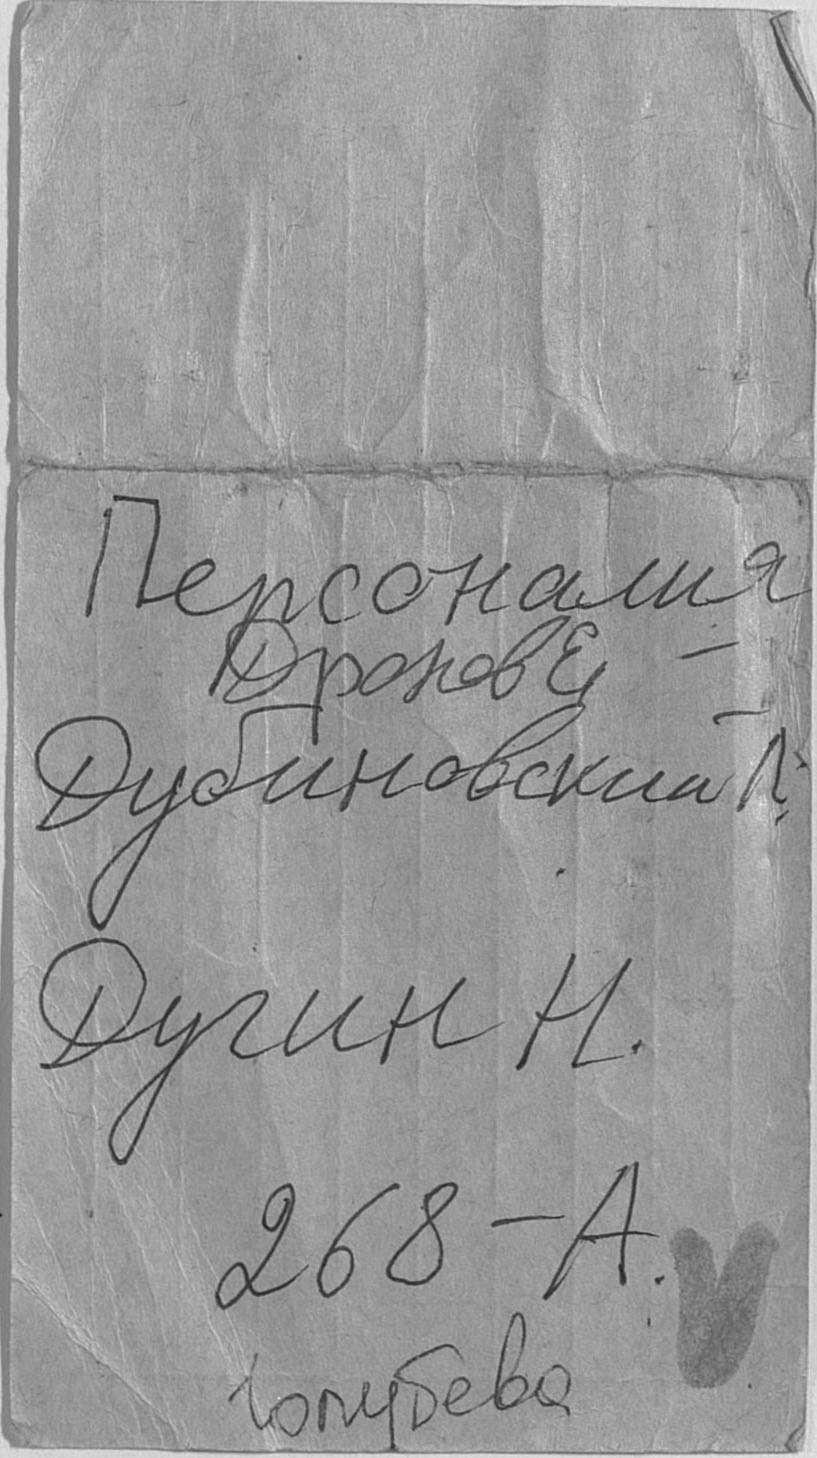 Персоналия
Дронов Е –
Дубиновский Л.
Дугин Н.
268 – А.
Голубева